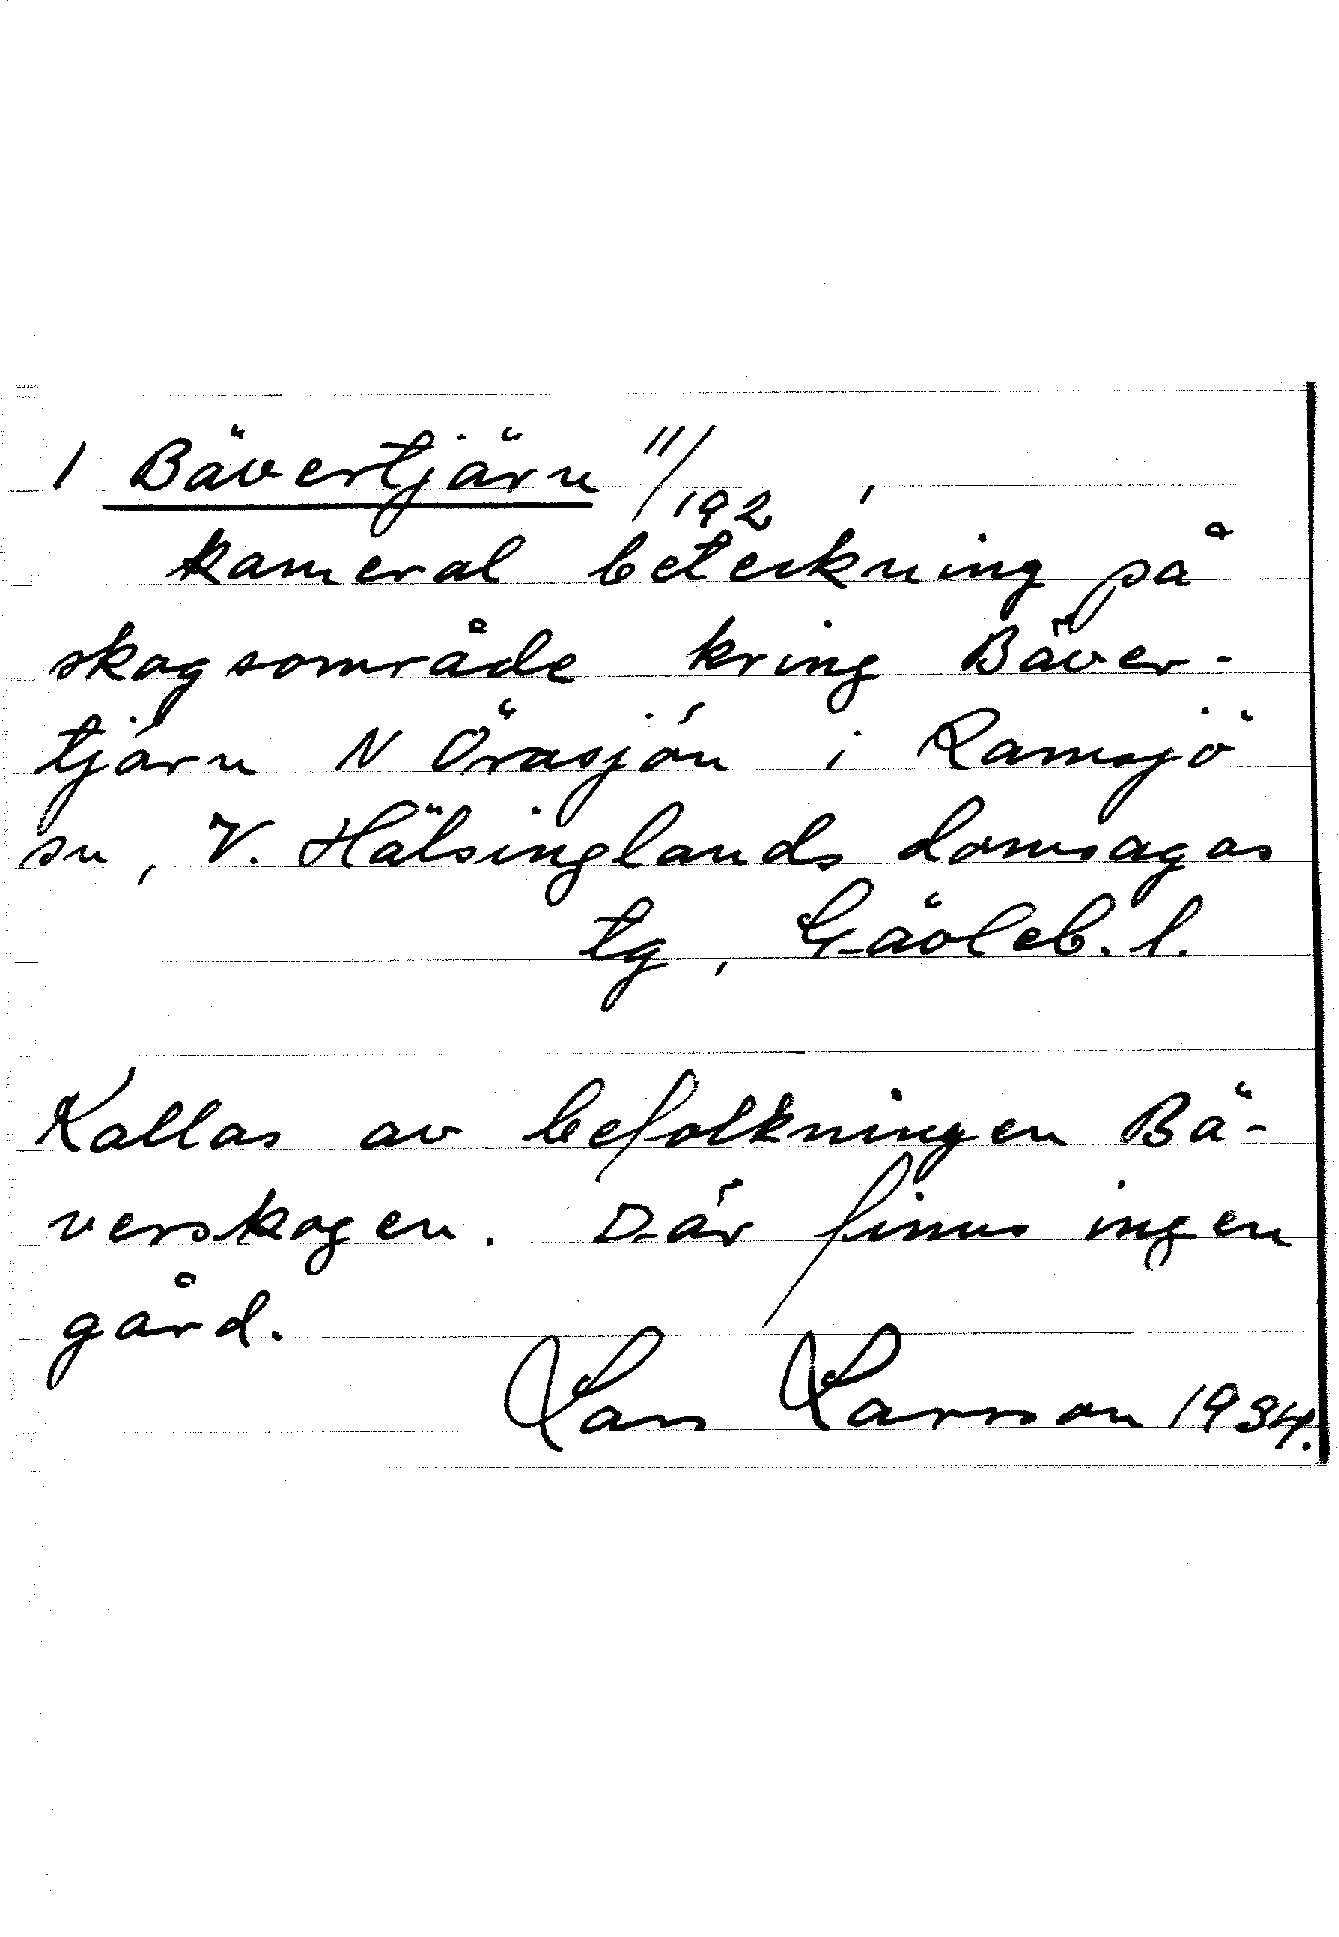 1 Bävertjärn 11/192,
kameral beteckning på
skogsområde kring Bäver-
tjärn N Öräsjön i Ramsjö
sn, V. Hälsinglands domsagas
tg, Gävleb. l.
Kallas av befolkningen Bä-
verskogen. Där finns ingen
gård.
Lars Larsson 1934.